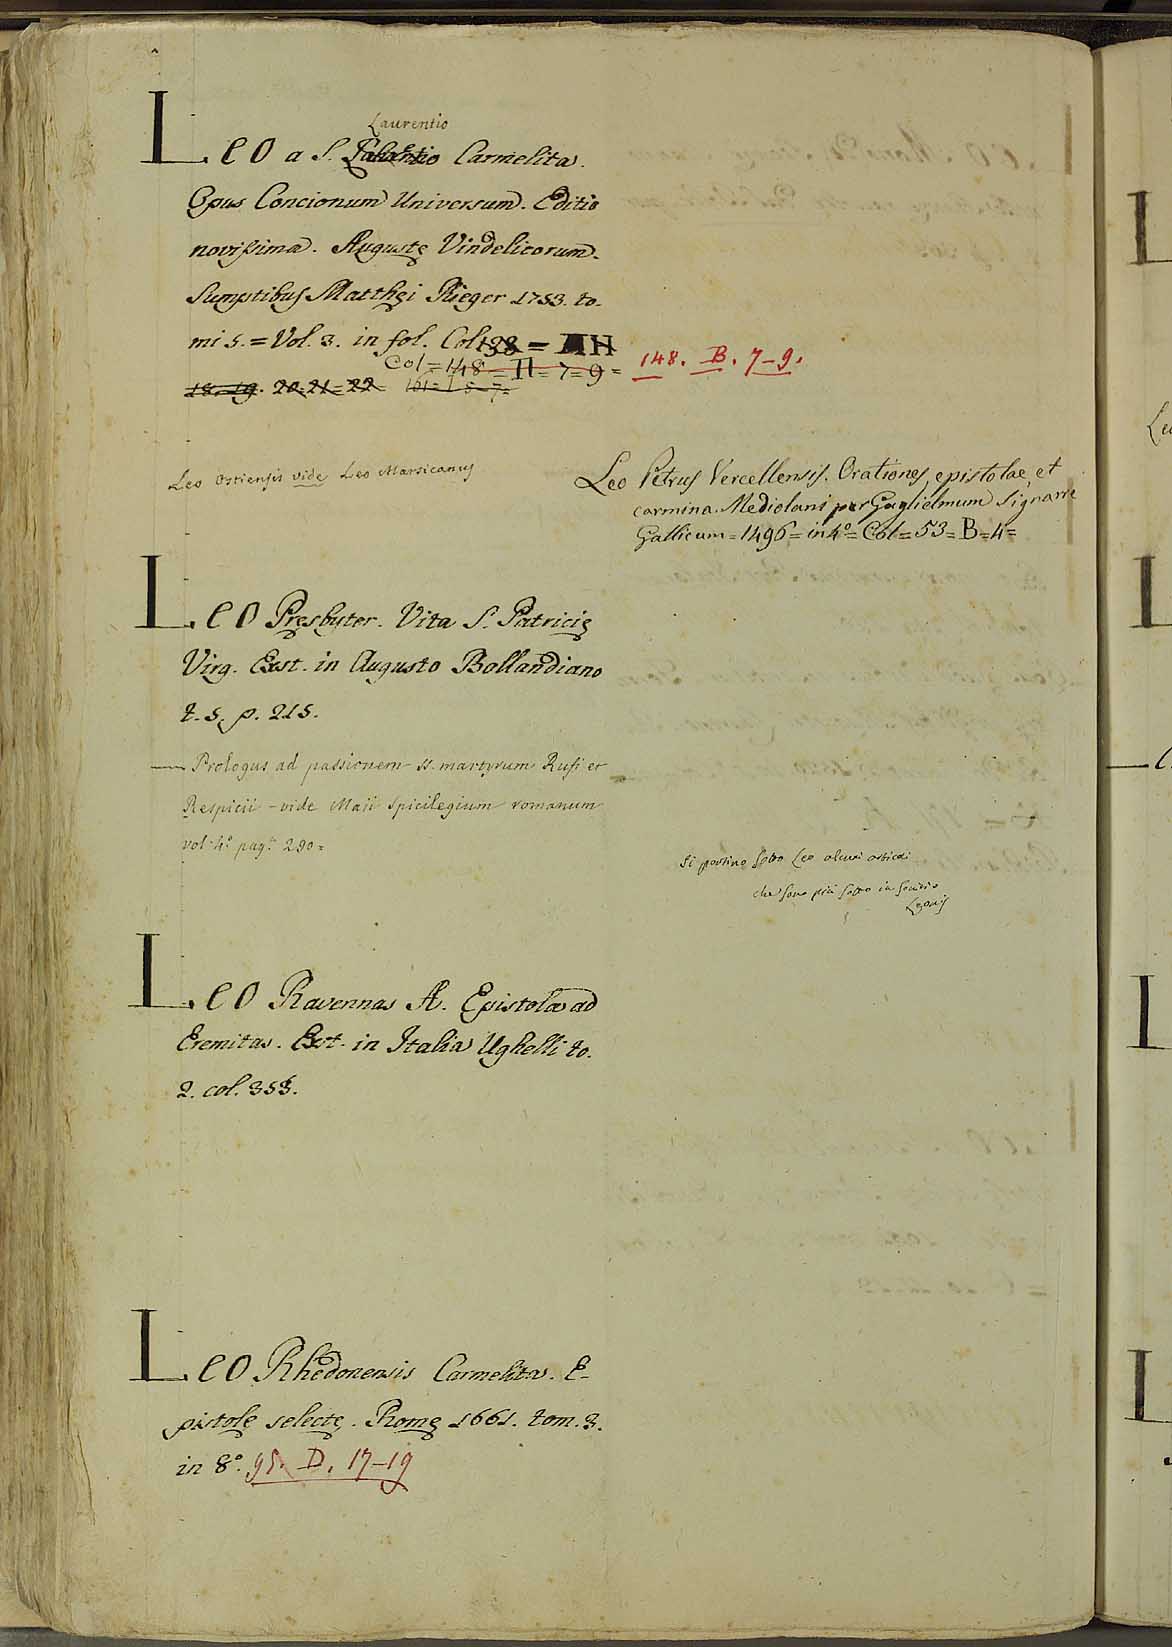 Laurentio
Leo a S. Carmelita.
Opus Concionum Universum. Editio
novissima. Augustę Vindelicorum.
Sumptibus Matthęi Rieger 1753. to-
mi 5. = Vol. 3. in fol. Col. 138 =
Col = 148 = II = 7 = 9 = 148. B. 7-9.
18. 19. 20. 21 = 22 = 161 = I 5 = 7 =
Leo Ostiensis vide Leo Marsicanus
Leo Petrus Vercellensis. Orationes, epistolae, et
carmina. Mediolani per Guglielmum Signarre
Gallicum = 1496 = in 4º = Col = 53 = B = 4 =
Leo Pręsbyter. Vita S. Patricię
Virg. Exst. in Augusto Bollandiano
t. 5. p. 215.
— Prologus ad passionem ss. martyrum Rufi et
Respicii - vide Maii Spicilegium romanum
vol. 4º pag. 290 =
Si portino sotto Leo alcuni articoli
che sono più sotto in
Leonis
Leo Ravennas A. Epistola ad
Eremitas. Ext. in Italia Ughelli to.
2. col. 353.
Leo Rhedonensis Carmelita. E-
pistolę selectę. Romę 1661. tom. 3.
in 8º. 95. D. 17-19